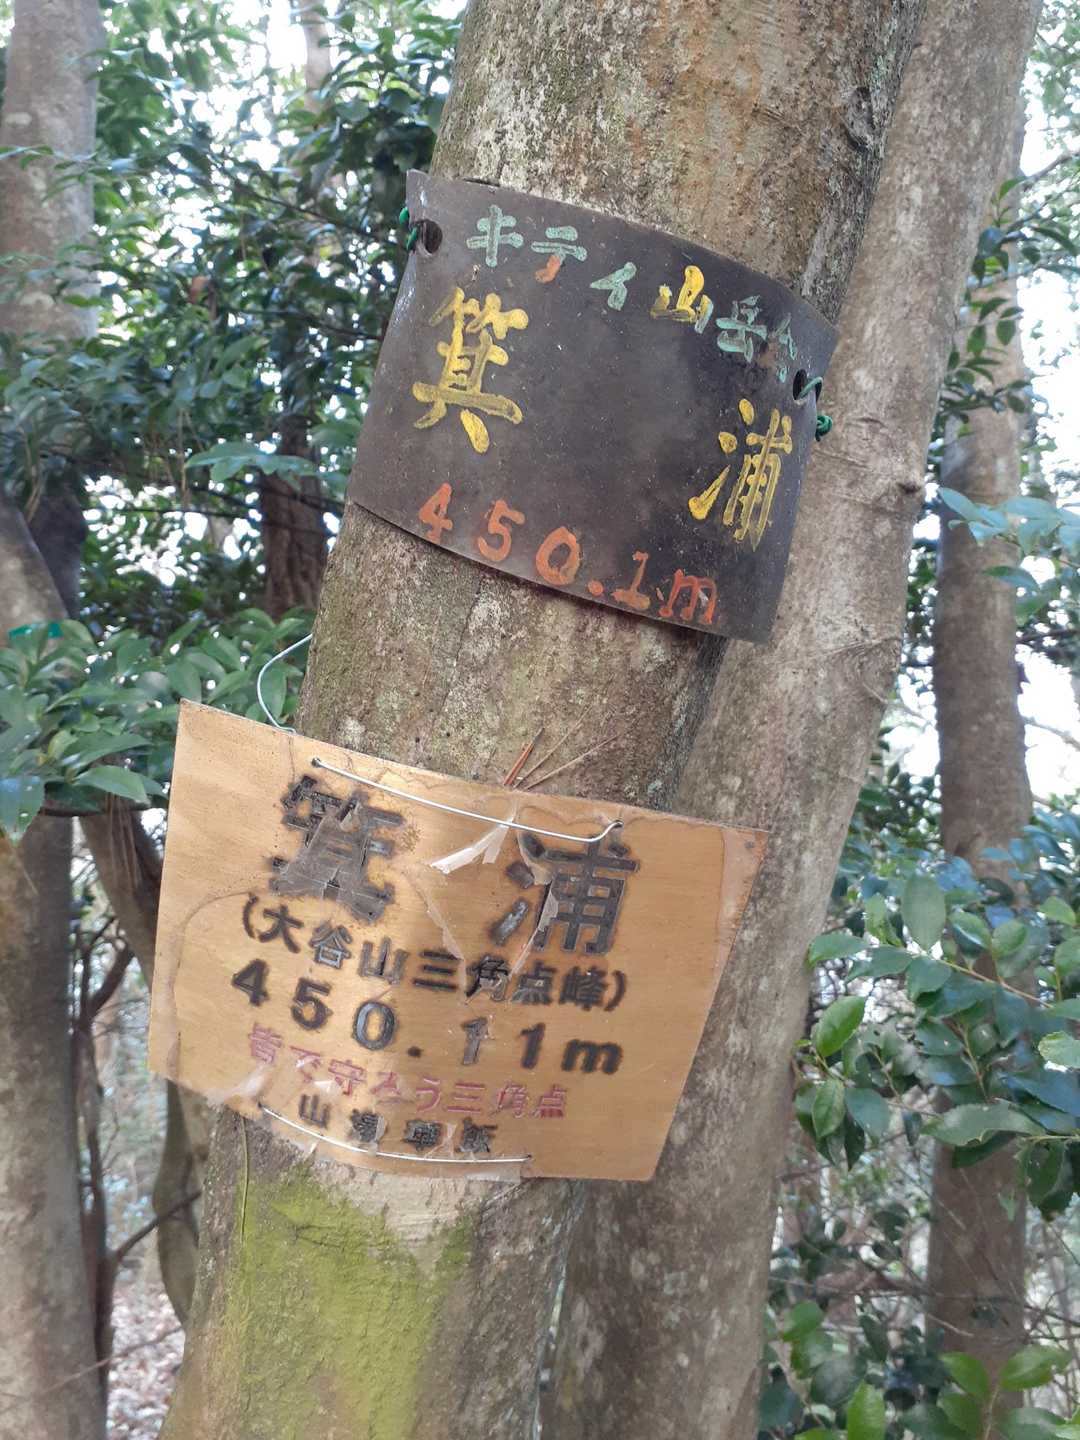 キティ山岳会
箕浦
450.1m
箕浦
(大谷山三角点峰)
450.11m
皆で守ろう三角点
山